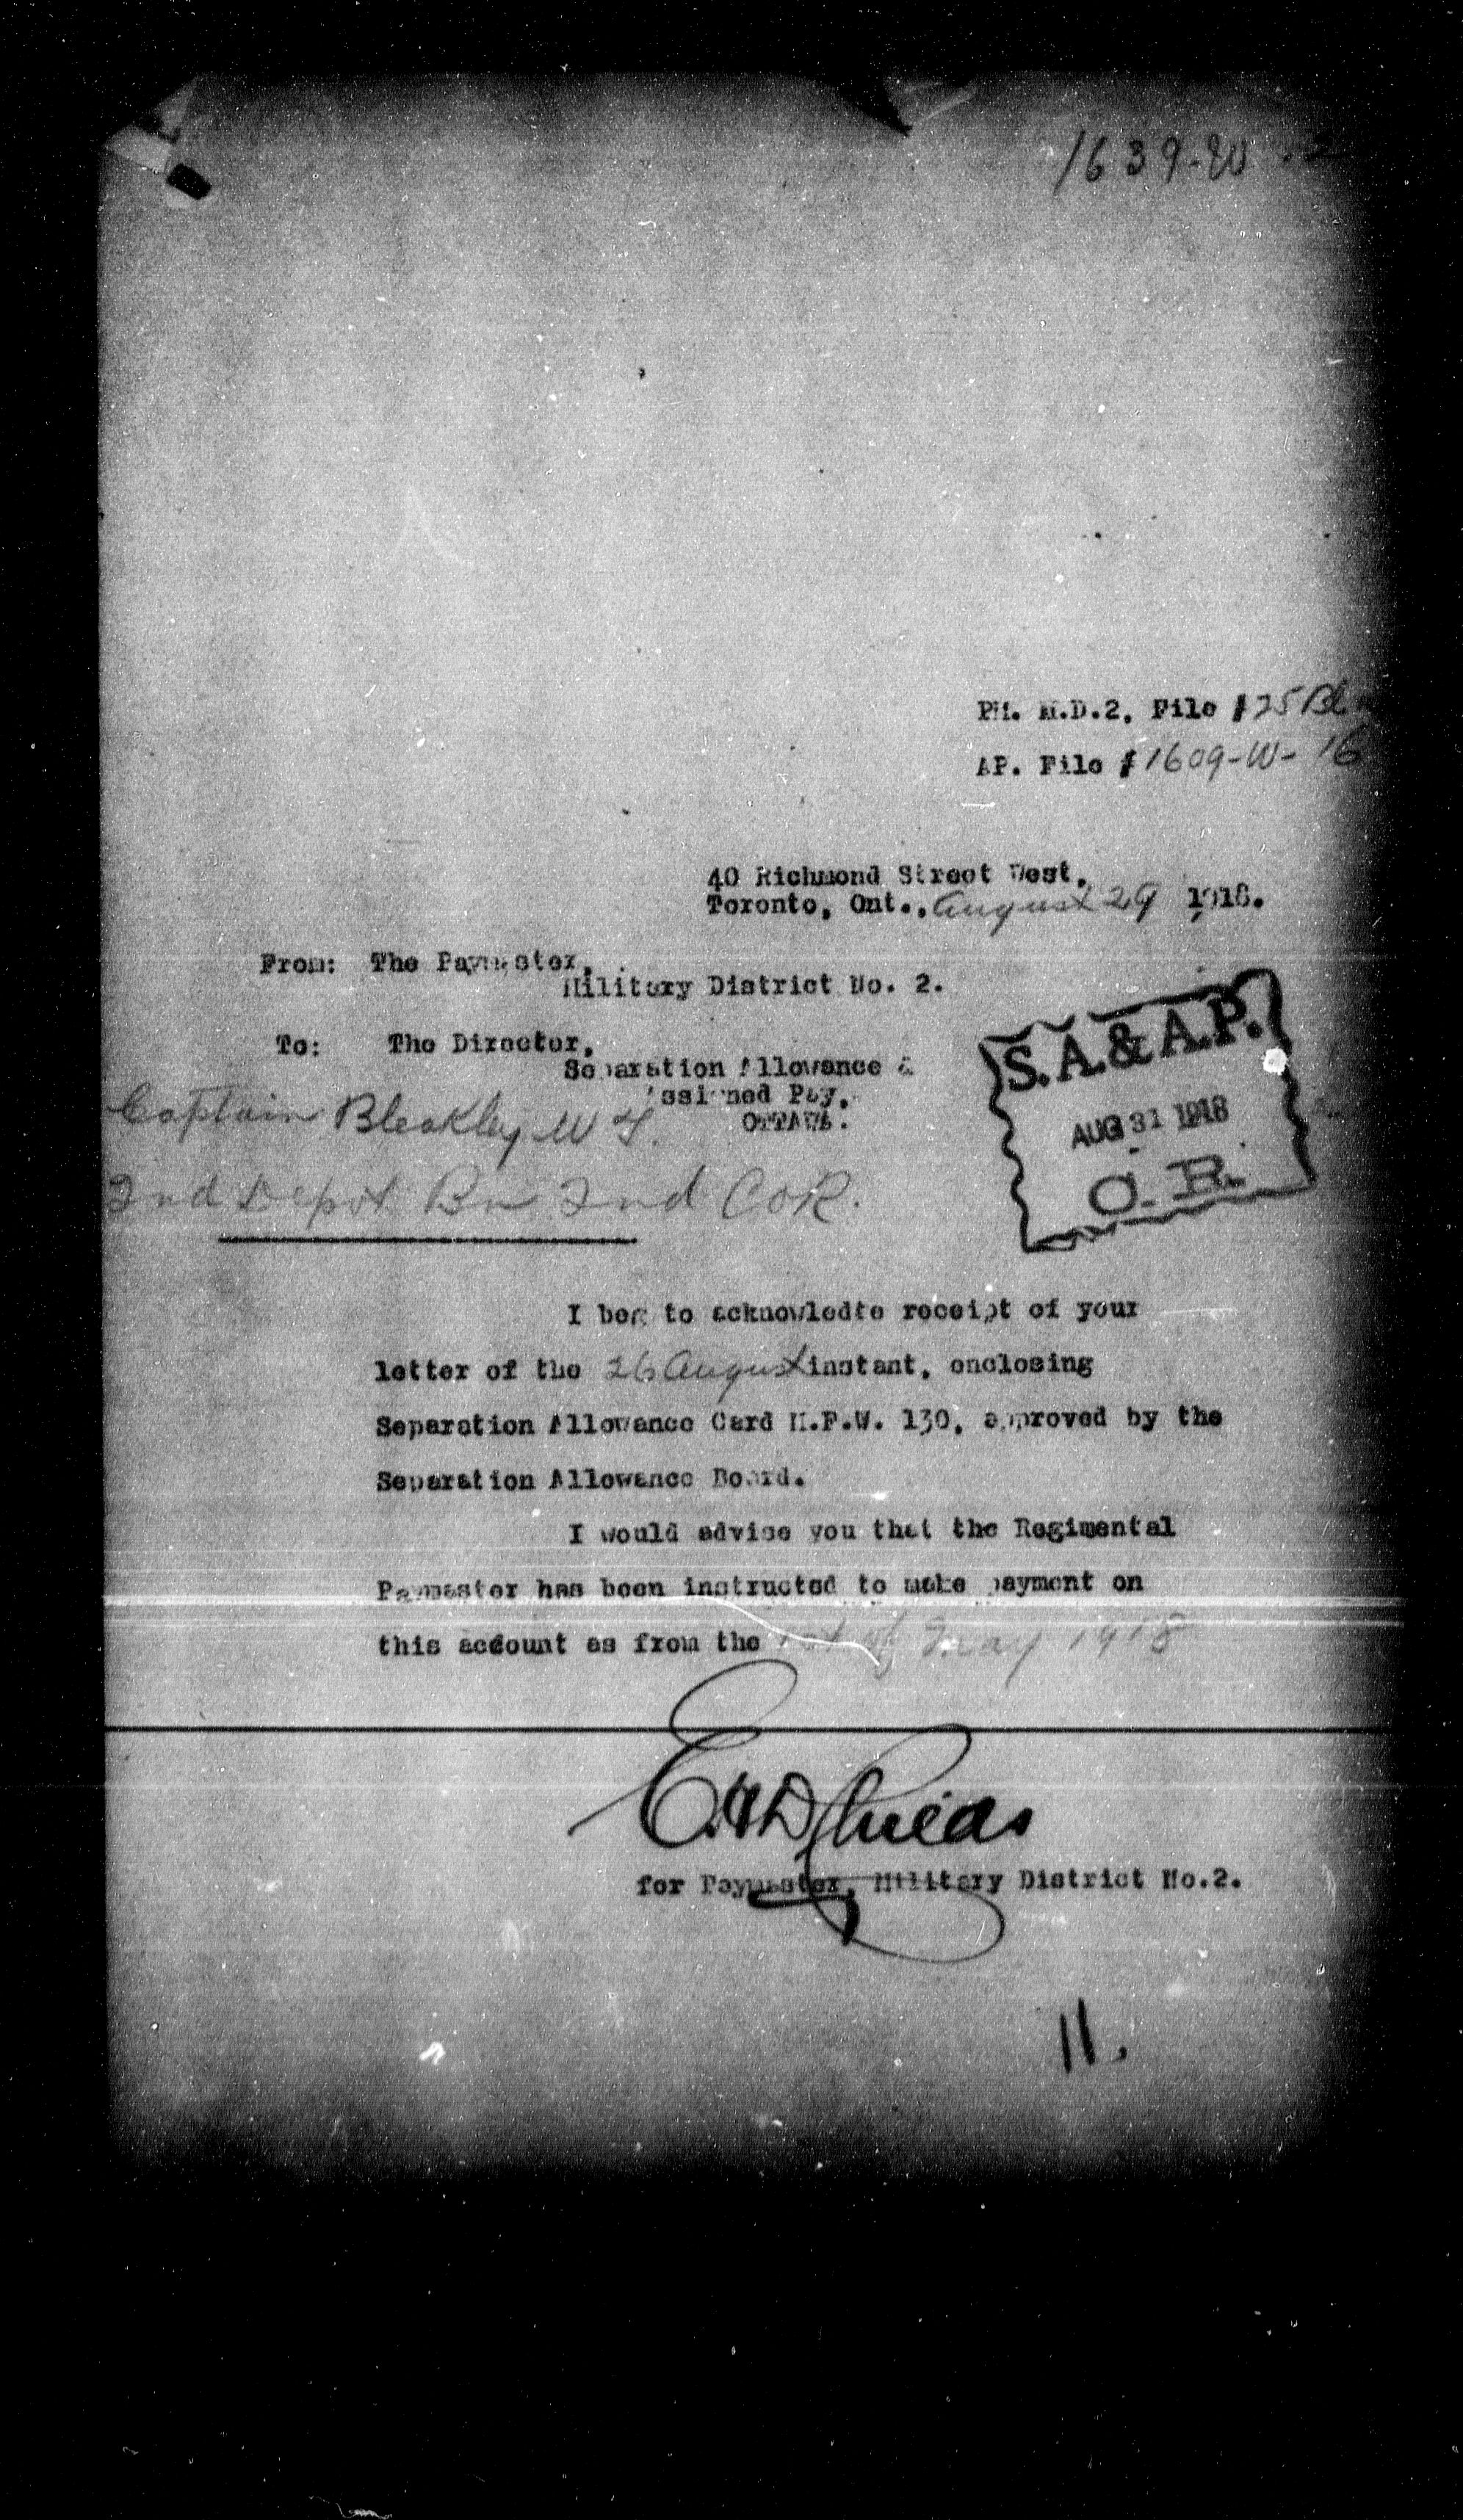 1639-W-2
PM. M.D.2, File #25 Bl
AP. File # 1609-W-16
40 Richmond Street West,
Toronto, Ont., August 29 1918.
From: The Paymaster,
Military District No. 2.
To: The Director,
Separation Allowance &
Assigned Pay,
OTTAWA.
S.A.&A.P.
AUG 31 1918
C. R.
Captain Bleakley W
2nd Depot Bn 2nd COR.
I beg to acknowledte receipt of your
letter of the 26 August instant, enclosing
Separation Allowance Card M.F.W. 130, approved by the
Separation Allowance Board.
I would advise you that the Regimental
Paymaster has been instructed to make payment on
this account as from the 1st of May 1918
for Paymaster, Military District No.2.
11.